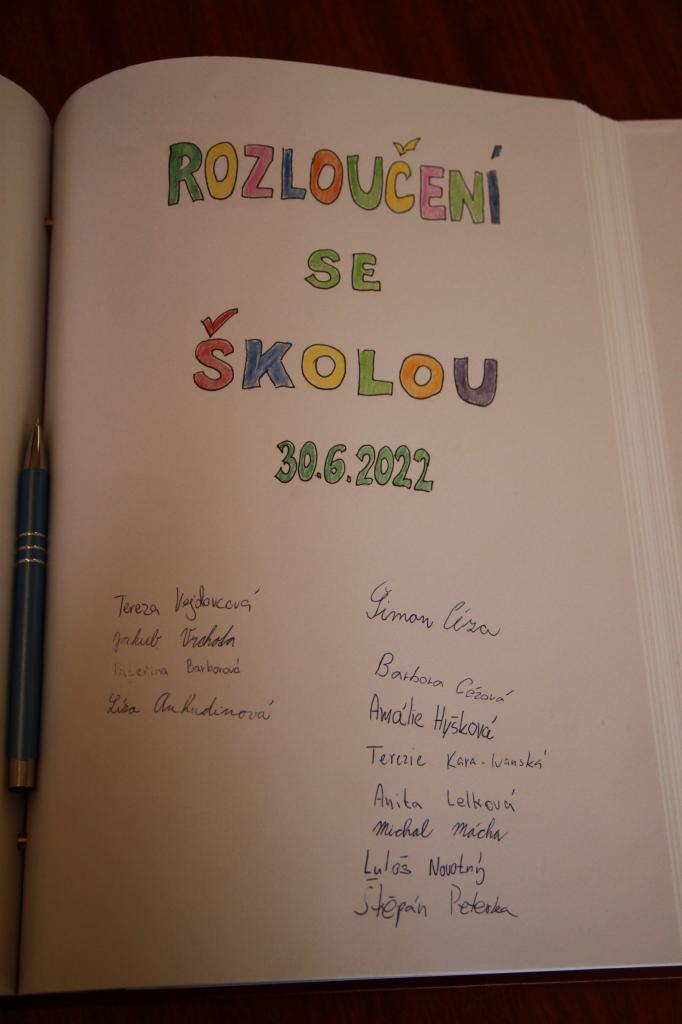 ROZLOUČENÍ
SE
ŠKOLOU
30.6.2022
Tereza Vejdovcová
Jakub Vrchota
Kateřina Barborová
Lisa Ankudinová
Šimon Céza
Barbora Cézová
Amálie Hyšková
Terezie Kara-Ivanská
Anita Lelková
Michal Mácha
Luboš Novotný
Štěpán Peterka